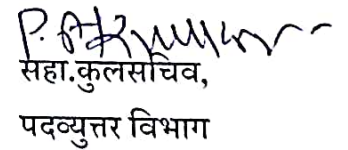 सहा.कुलसचिव,
पदव्युत्तर विभाग